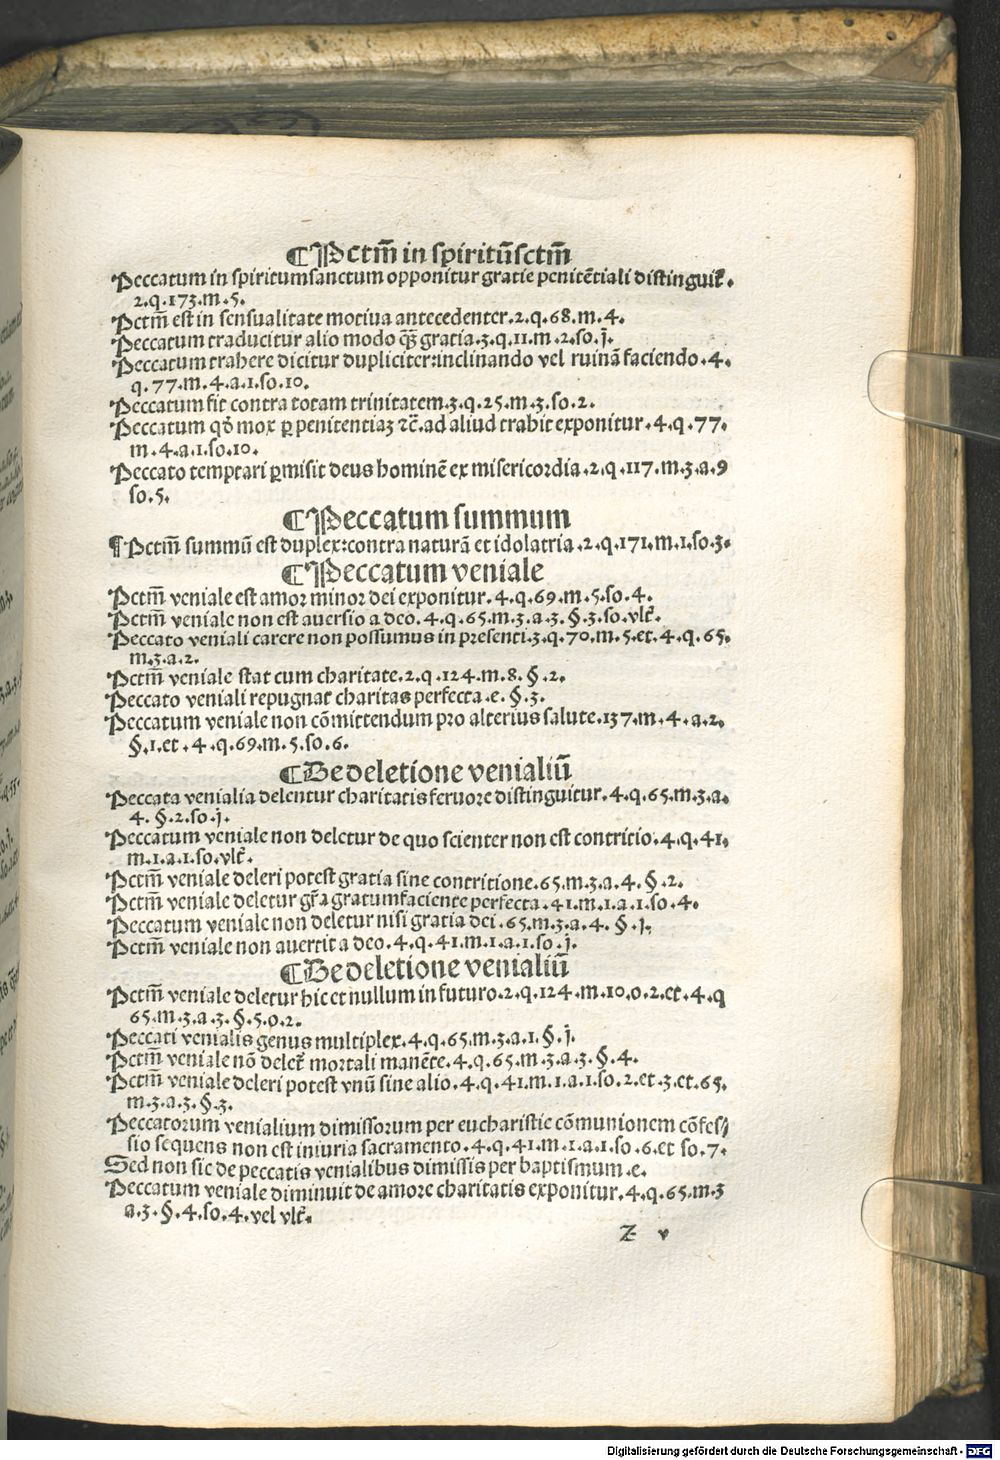 ¶Pctm̄ in spiritūsctm̄
Peccatum in spiritumsanctum opponitur gratie penitētiali distinguit̄.
2.q.173.m.5.
Pctm̄ est in sensualitate motiua antecedenter.2.q.68.m.4.
Peccatum traducitur alio modo qꝫ gratia.3.q.11.m.2.so.j.
Peccatum trahere dicitur dupliciter:inclinando vel ruinā faciendo.4.
q.77.m.4.a.1.so.10.
Peccatum fit contra totam trinitatem.3.q.25.m.3.so.2.
Peccatum qđ mox ꝑ penitentiaꝫ ⁊c̄.ad aliud trahit exponitur.4.q.77.
m.4.a.1.so.10.
Peccato temptari ꝑmisit deus hominē ex misericordia.2.q.117.m.3.a.9
so.5.
¶Peccatum summum
¶Pctm̄ summū est duplex:contra naturā et idolatria.2.q.171.m.1.so.3.
¶Peccatum veniale
Pctm̄ veniale est amor minor dei exponitur.4.q.69.m.5.so.4.
Pctm̄ veniale non est auersio a deo.4.q.65.m.3.a.3.§.3.so.vlt̄.
Peccato veniali carere non possumus in presenti.3.q.70.m.5.et.4.q.65.
m.3.a.2.
Pctm̄ veniale stat cum charitate.2.q.124.m.8.§.2.
Peccato veniali repugnat charitas perfecta.e.§.3.
Peccatum veniale non cōmittendum pro alterius salute.137.m.4.a.2.
§.1.et.4.q.69.m.5.so.6.
¶De deletione venialiū
Peccata venialia delentur charitatis feruore distinguitur.4.q.65.m.3.a.
4.§.2.so.j.
Peccatum veniale non deletur de quo scienter non est contritio.4.q.41.
m.1.a.1.so.vlt̄.
Pctm̄ veniale deleri potest gratia sine contritione.65.m.3.a.4.§.2.
Pctm̄ veniale deletur gr̄a gratumfaciente perfecta.41.m.1.a.1.so.4.
Peccatum veniale non deletur nisi gratia dei.65.m.3.a.4.§.j.
Pctm̄ veniale non auertit a deo.4.q.41.m.1.a.1.so.j.
¶De deletione venialiū
Pctm̄ veniale deletur hic et nullum in futuro.2.q.124.m.10.o.2.et.4.q
65.m.3.a.3.§.5.o.2.
Peccati venialis genus multiplex.4.q.65.m.3.a.1.§.j.
Pctm̄ veniale nō delet̄ mortali manēte.4.q.65.m.3.a.3.§.4.
Pctm̄ veniale deleri potest vnū sine alio.4.q.41.m.1.a.1.so.2.et.3.et.65.
m.3.a.3.§.3.
Peccatorum venialium dimissorum per eucharistie cōmunionem cōfes/
sio sequens non est iniuria sacramento.4.q.41.m.1.a.1.so.6.et so.7.
Sed non sic de peccatis venialibus dimissis per baptismum.e.
Peccatum veniale diminuit de amore charitatis exponitur.4.q.65.m.3
a.3.§.4.so.4.vel vlt̄.
Z v
Digitalisierung gefördert durch die Deutsche Forschungsgemeinschaft - DFG